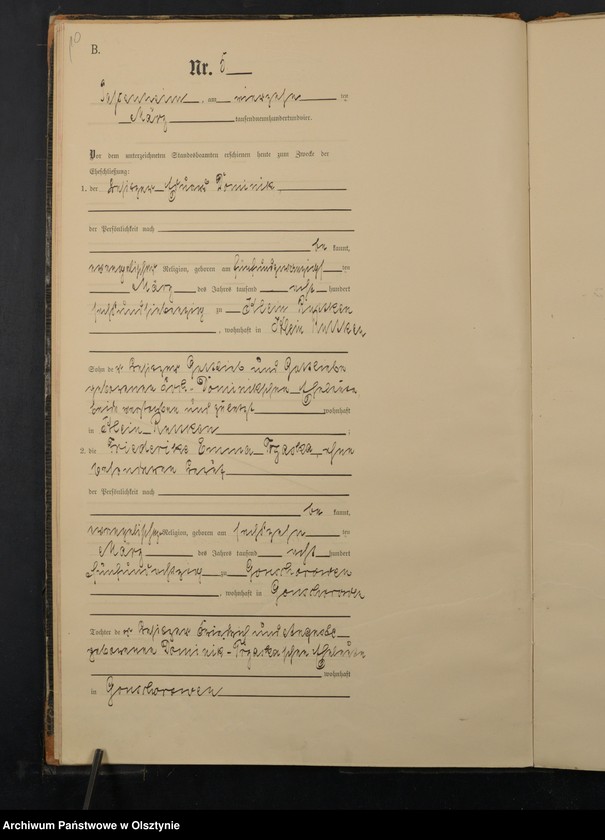 10
B.
Nr. 5
am vierzehn ten
März tausendneunhundertundvier.
Vor dem unterzeichneten Standesbeamten erschienen heute zum Zwecke der
Eheschließung:
1. der Besitzer Eduard Dominik
der Persönlichkeit nach
be kannt,
evangelischer Religion, geboren am fünfundzwanzigsten
März des Jahres tausend acht hundert
sechsundsiebenzig zu Klein
, wohnhaft in Klein
Sohn der Besitzer Gottlieb und Gottliebe
geborenen Dominikschen Eheleute
beide verstorben und zuletzt wohnhaft
in Klein ;
2. die Friederike Emma Trzaska, ohne
besonderen Beruf
der Persönlichkeit nach
be kannt,
evangelischer Religion, geboren am sechszehn ten
März des Jahres tausend acht hundert
fünfundachtzig zu Gonschorowen
, wohnhaft in Gonschorowen
Tochter der Besitzer Friedrich und
geborenen Dominik-Trzaskaschen Eheleute
wohnhaft
in Gonschorowen
Archiwum Państwowe w Olsztynie